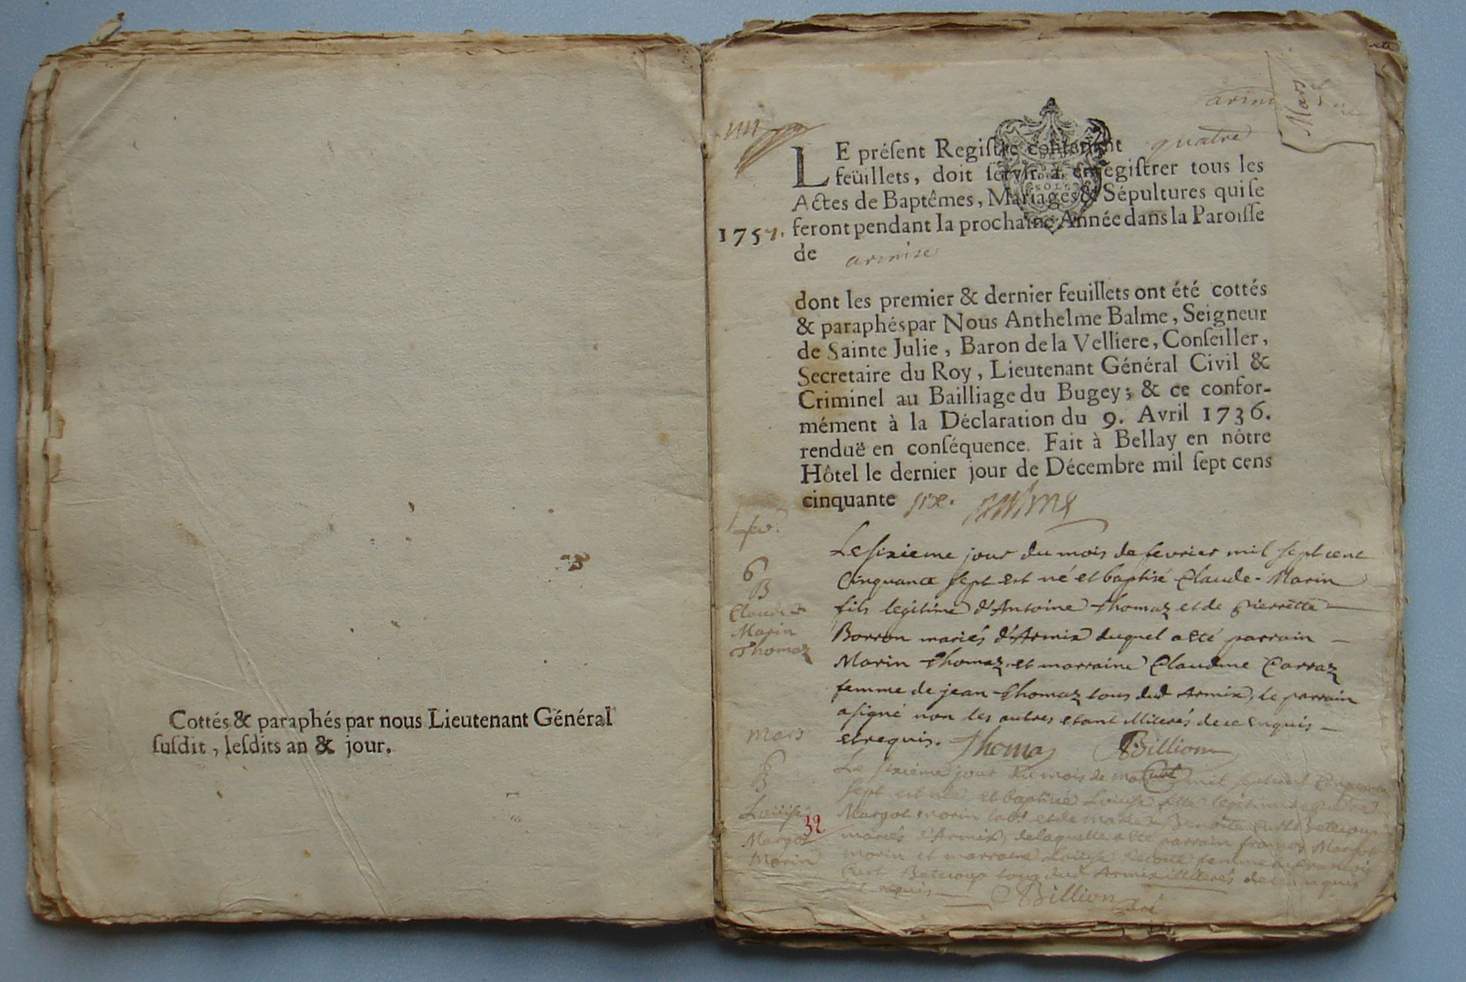 Cottés & paraphés par nous Lieutenant Général
susdit, lesdits an & jour.
Mars
quatre
LE présent Registre contenant
feüillets, doit servir à enregistrer tous les
Actes de Baptêmes, Mariages & Sépultures qui se
1757. feront pendant la prochaine Année dans la Paroisse
de armise
dont les premier & dernier feuillets ont été cottés
& paraphés par Nous Anthelme Balme, Seigneur
de Sainte Julie, Baron de la Velliere, Conseiller,
Secretaire du Roy, Lieutenant Général Civil &
Criminel au Bailliage du Bugey; & ce confor-
mément à la Déclaration du 9. Avril 1736.
renduë en conséquence. Fait à Bellay en nôtre
Hôtel le dernier jour de Décembre mil sept cens
cinquante six.
6
B
Claude
Marin
Thomaz
Le sixieme jour du mois de fevrier mil sept cent
cinquante sept est né et baptisé Claude-Marin
fils legitime d'Antoine Thomaz et de pierrette
Borron mariés d'Armix duquel a eté parrain
Marin Thomaz et marraine Claudine Carraz
femme de jean Thomaz tous dud Armix, le parrain
a signé non les autres etant illiterés de ce enquis
et requis. Thomaz Billion
mars
6
B
Louise
Margot
Marin
32
Le sixieme jour du mois de mars mil sept cent cinquante
sept est née et baptisée Louise fille legitime
Margot marin
mariés d'Armix, de laquelle a eté parrain françois Margot
marin et marraine Louise femme a francois
tous dud Armix illiterés de ce enquis
et requis Billion curé